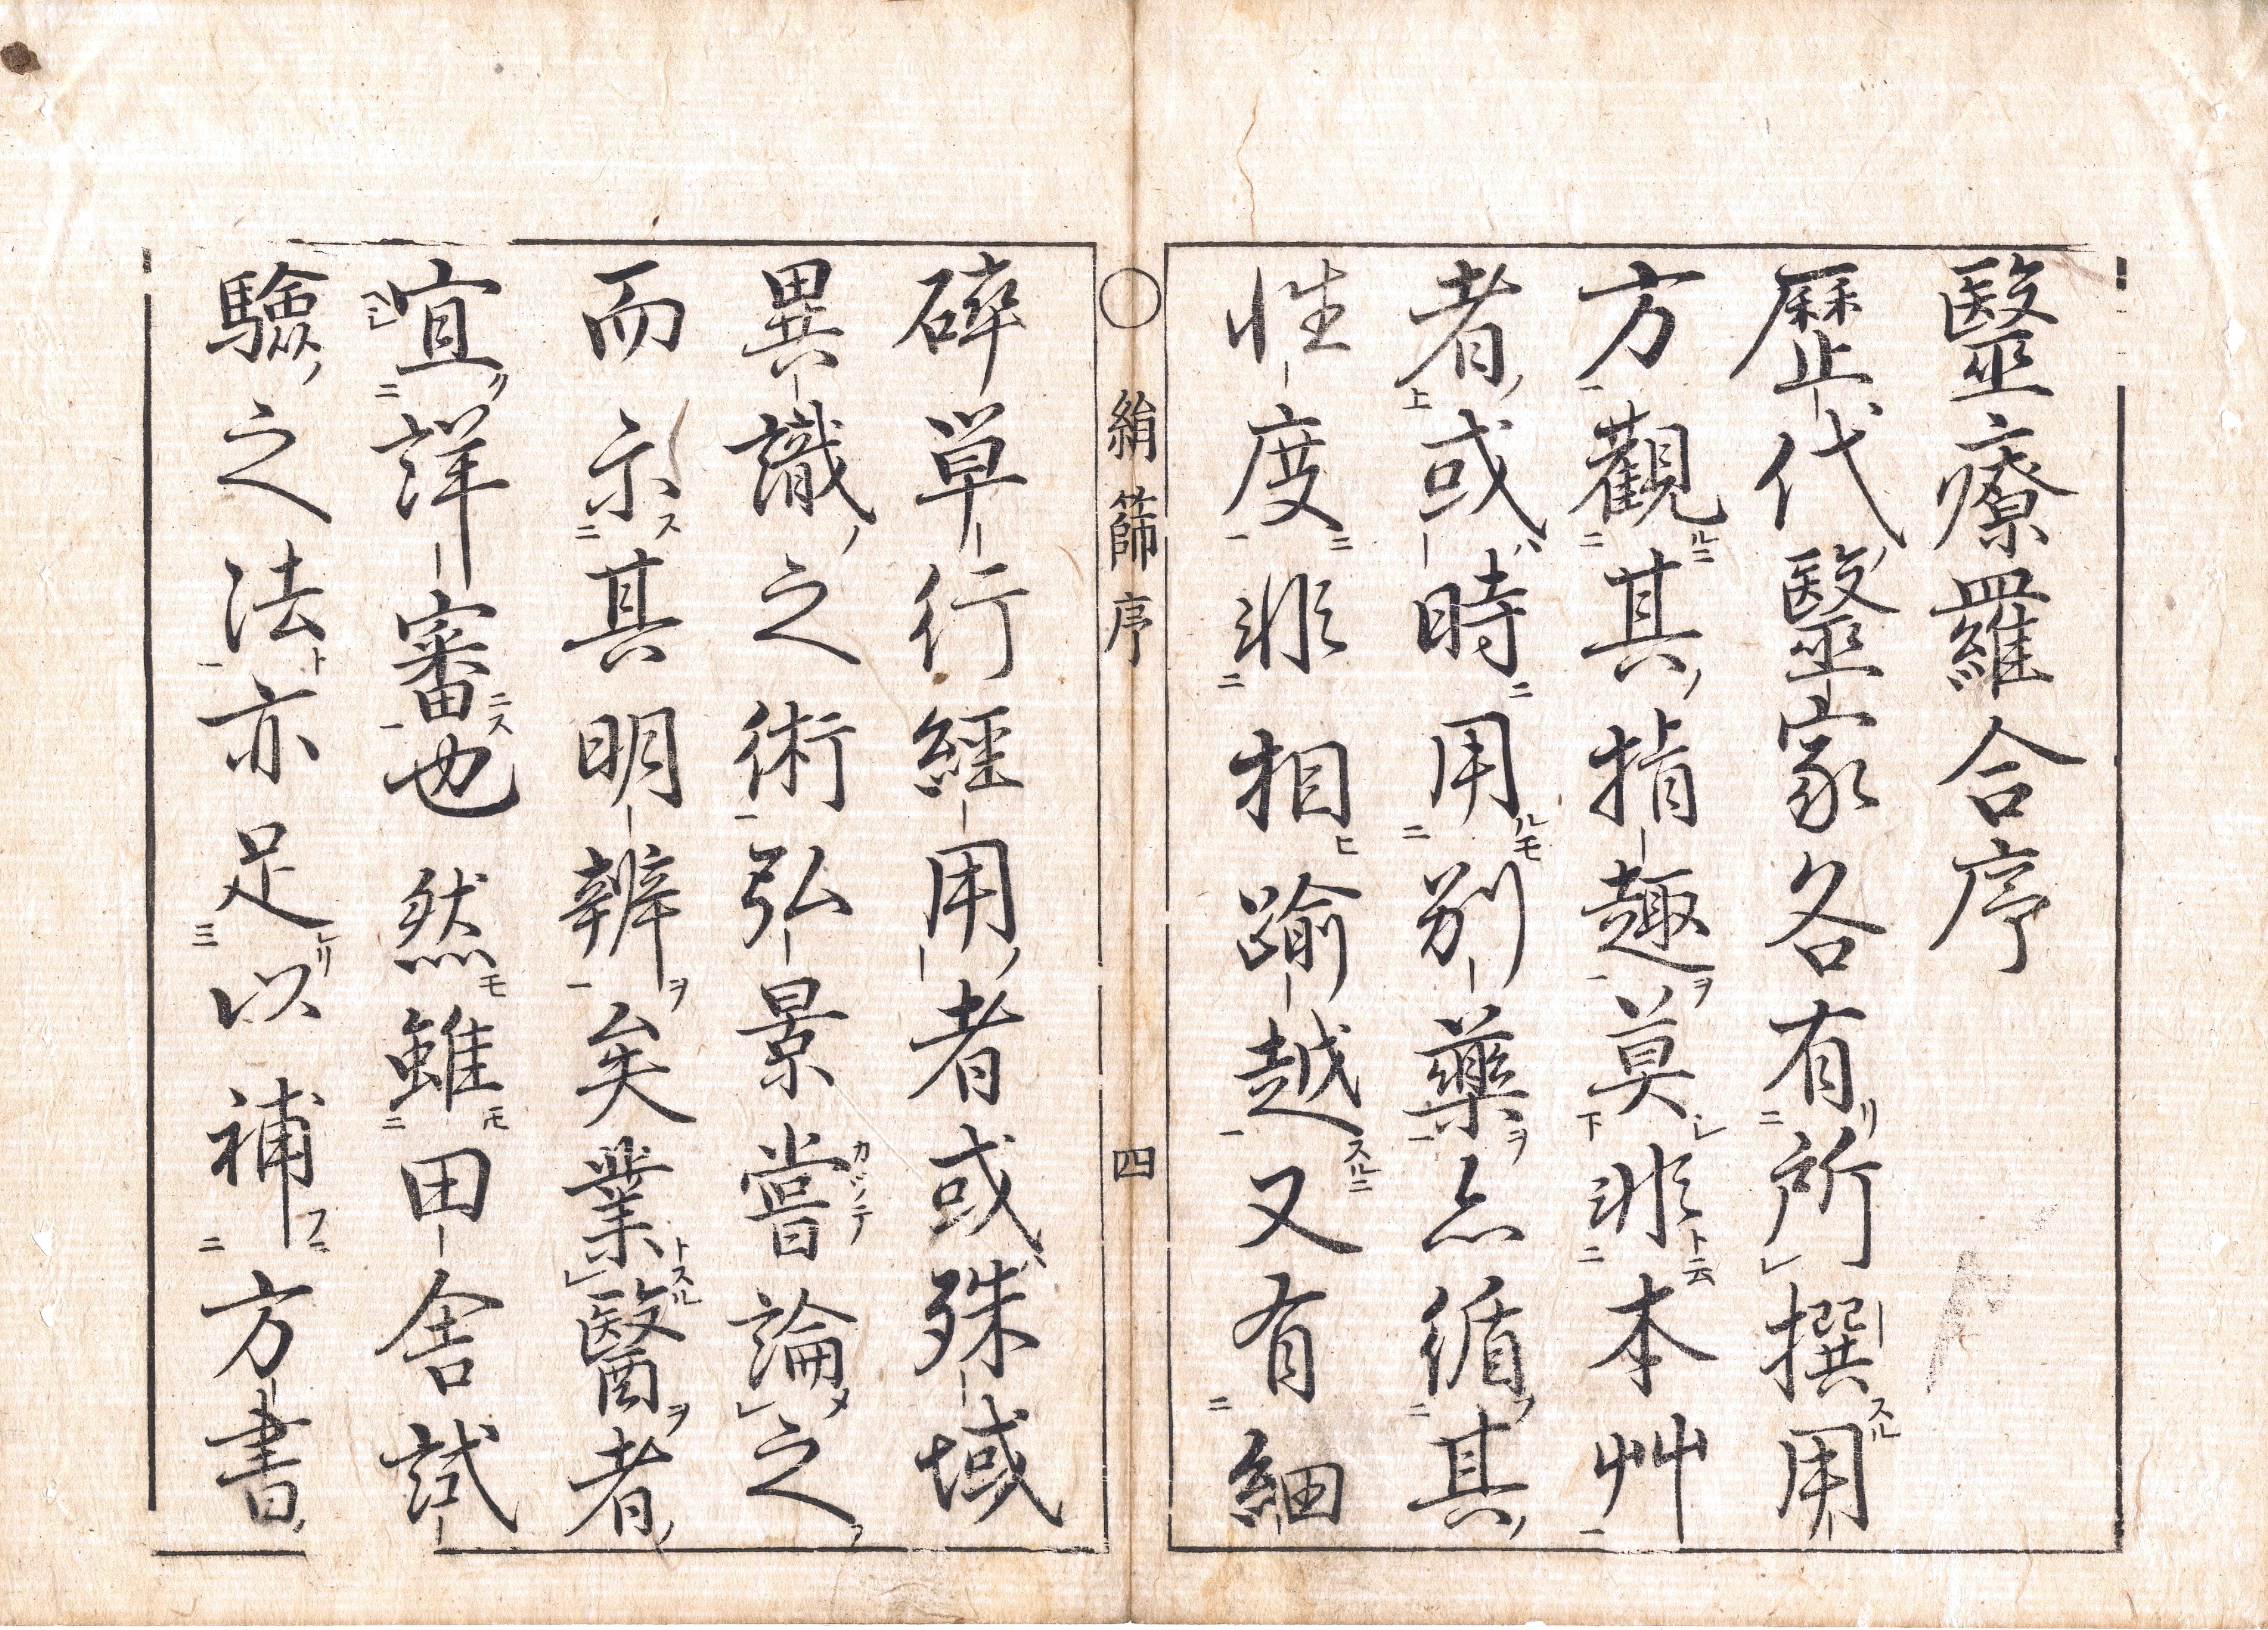 毉療羅合序
歷代毉家各有所撰用
方觀其指趣莫非本艸
者或時用別藥亦循其
性度非相踰越又有細
絹篩序
四
碎草行經用者或殊域
異識之術弘景嘗論之
而示其明辨矣業醫者
宜詳審也然雖田舍試
驗之法亦足以補方書